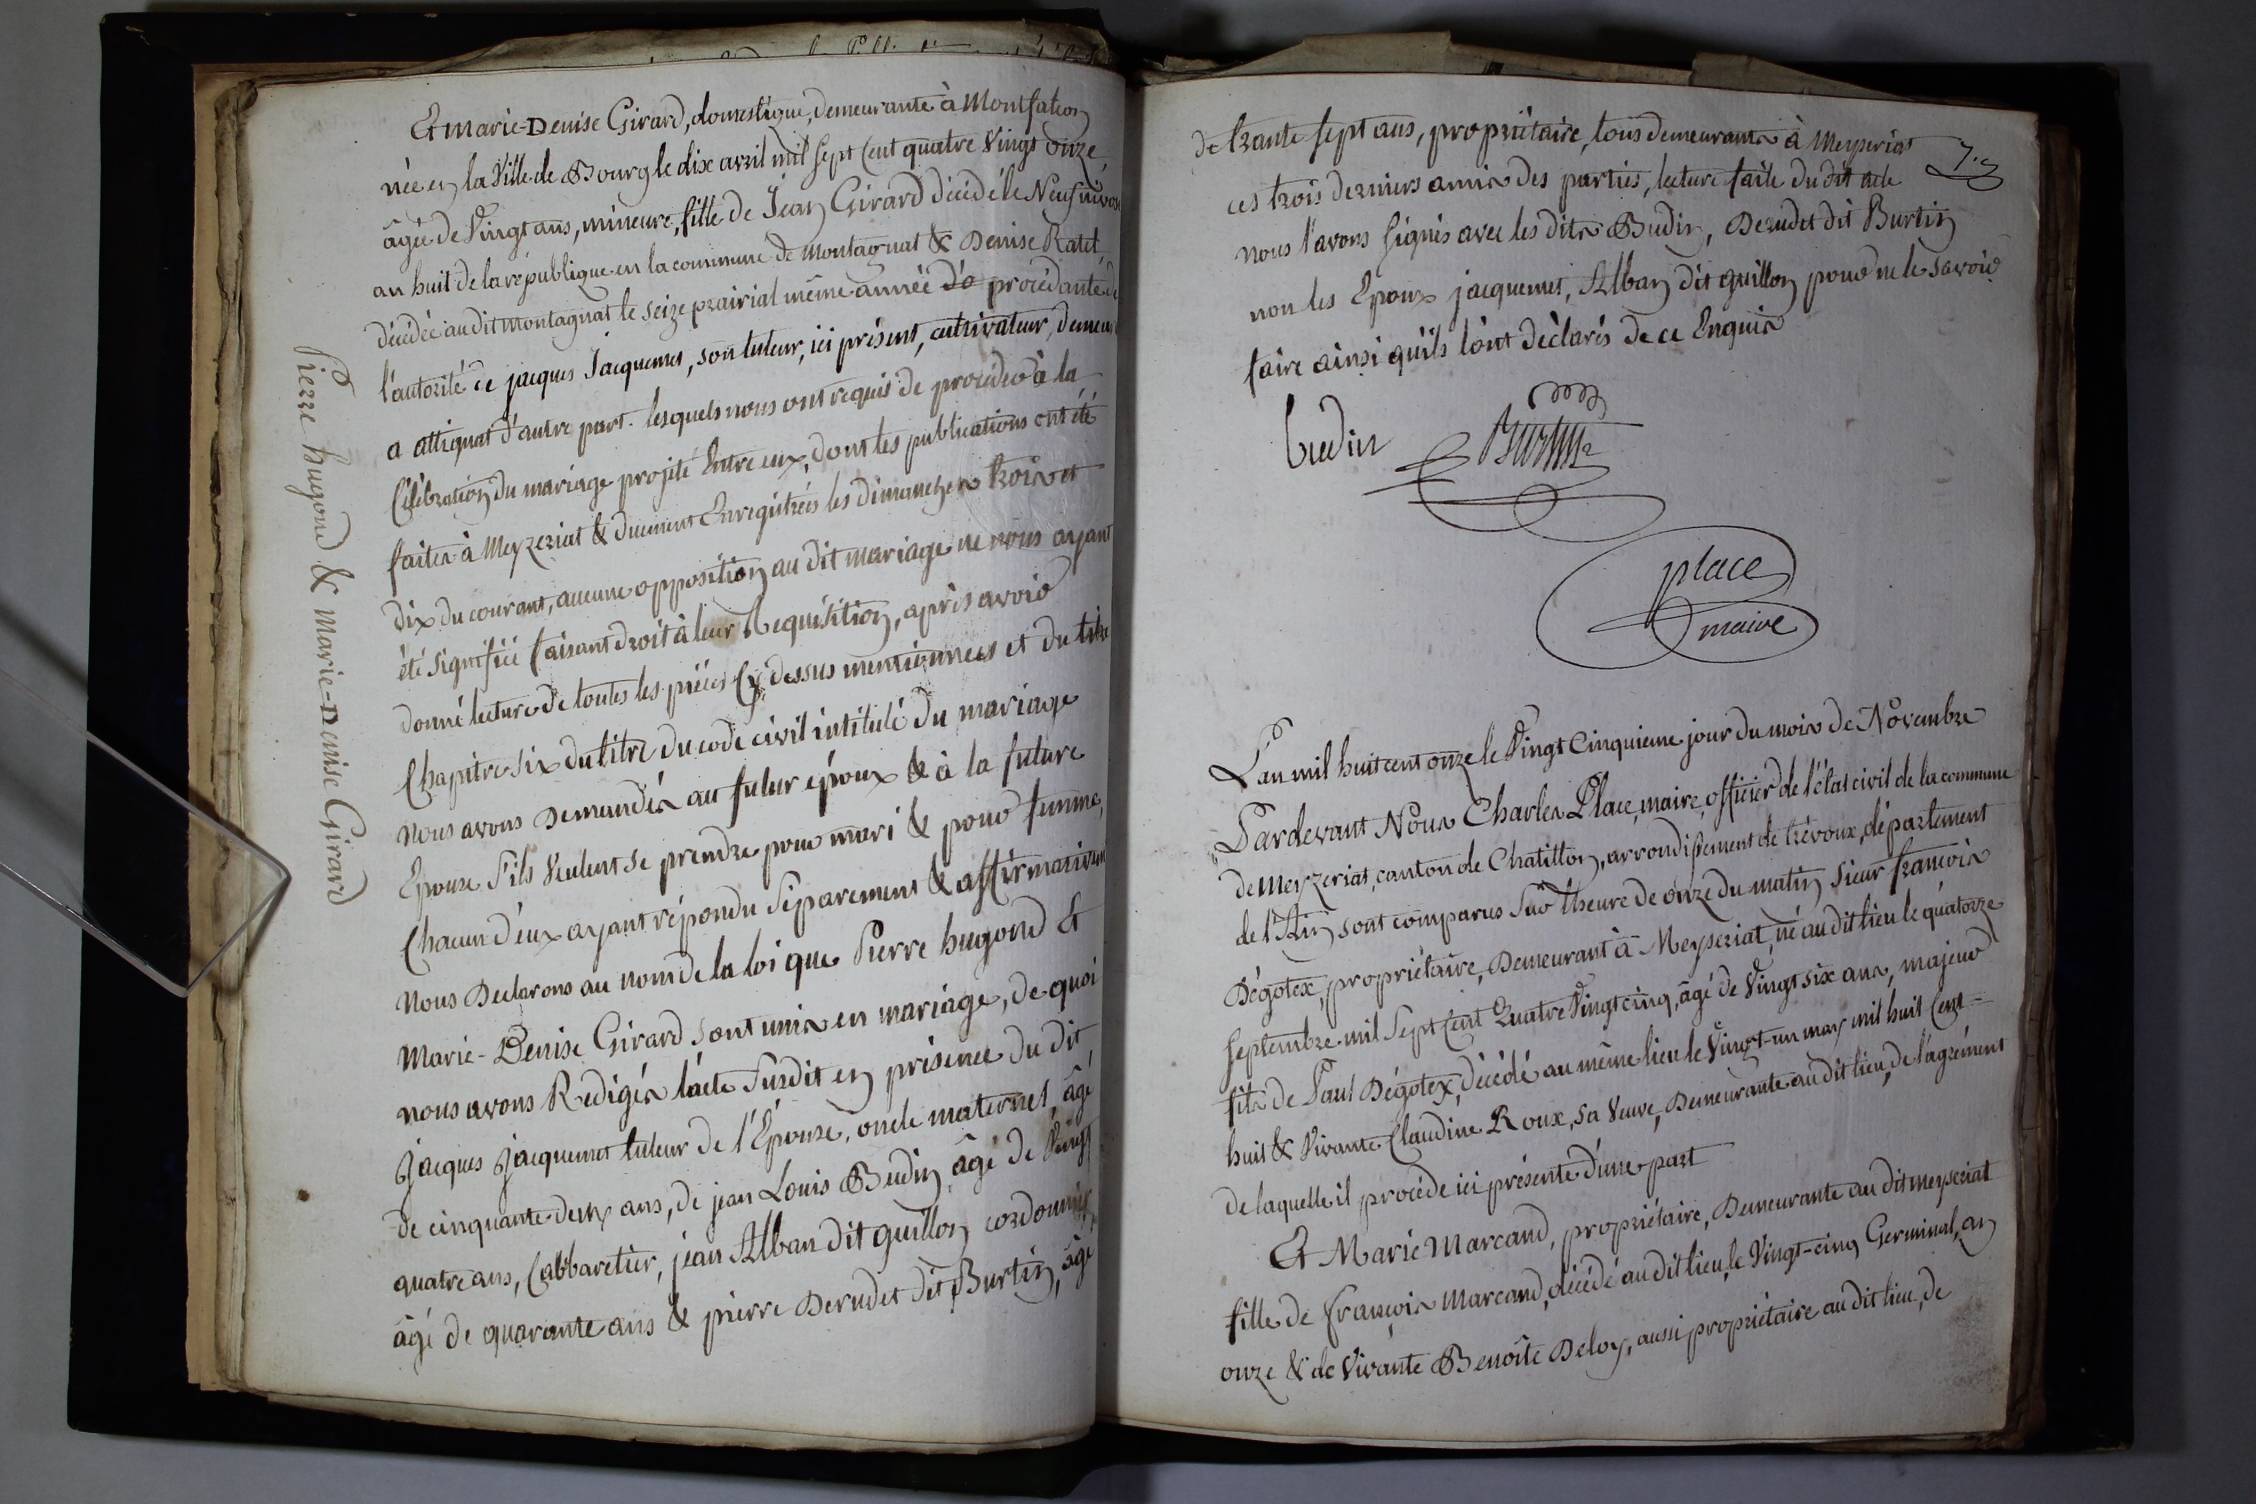 Et marie-Denise Girard, domestique, demeurante à Montfalcon
née en la Ville de Bourg le dix avril mil sept Cent quatre Vingt onze,
âgée de Vingt ans, mineure, fille de Jean Girard décédé le Neuf nivose
an huit de la république en la commune de Montagnat & Denise Ratel,
décédée au dit montagnat le seize prairial même année procédante de
l'autorité de jacques Jacquemet, son tuteur, ici présent, cultivateur, demeu
a attignat d'autre part. lesquels nous ont requis de procéder à la
Célébration du mariage projeté Entre eux, dont les publications ont été
faites à Meyzeriat & duement Enregitrées les dimanches trois et
dix du courant, aucune opposition au dit mariage ne nous ayant
été signifiée faisant droit à leur Requisition, après avoir
donné lecture de toutes les pièces Cy dessus mentionnées et du titre
Chapitre six du titre du code civil intitulé du mariage
nous avons Demandés au futur époux & à la future
Epouse s'ils veulent se prendre pour mari & pour femme,
Chacun d'eux ayant répondu séparement & affirmativem
nous Declarons au nom de la loi que Pierre hugond et
Marie-Denise Girard sont unis en mariage, de quoi
nous avons Redigés l'acte susdit en présence du dit
Jacques Jacquemet tuteur de l'Epouse, oncle maternel, âgé
de cinquante deux ans, de jean Louis Budin âgé de Vingt
quatre ans, Cabbaretier, jean Alban dit guillon cordonnier
âgé de quarante ans & pierre Derudet dit Burtin, âgé
Pierre hugond & marie-Denise Girard
de trante sept ans, propriétaire, tous demeurants à Meyseriat
ces trois derniers amis des parties, lecture faite du dit acte
nous l'avons signés avec les dits Budin, Derudet dit Burtin
non les Epoux jacquemet, Alban dit guillon pour ne le savoir
faire ainsi qu'ils l'ont déclarés de ce Enquis
budin Burtin
place
maire
L'an mil huit cent onze le Vingt Cinquieme jour du mois de Novembre
Pardevant Nous Charles Place, maire, officier de l'état civil de la commune
de Meyzeriat, canton de Chatillon, arrondissement de trévoux, département
de l'Ain sont comparus sur l'heure de onze du matin sieur françois
Dégotex, propriétaire, Demeurant à Meyseriat, né au dit lieu le quatorze
septembre mil Sept Cent Quatre Vingt cinq, âgé de Vingt six ans, majeur
fils de Paul Dégotex, décédé au même lieu le Vingt-un may mil huit Cent=
huit & Vivante Claudine Roux, sa Veuve, Demeurante au dit lieu, de l'agrément
de laquelle il procède ici présente d'une part
Et Marie Marcand, propriétaire, Demeurante au dit meyseriat
fille de françois Marcand, décédé au dit lieu, le Vingt-cinq Germinal, an
onze & de Vivante Benoîte Deloy, aussi propriétaire au dit lieu, de